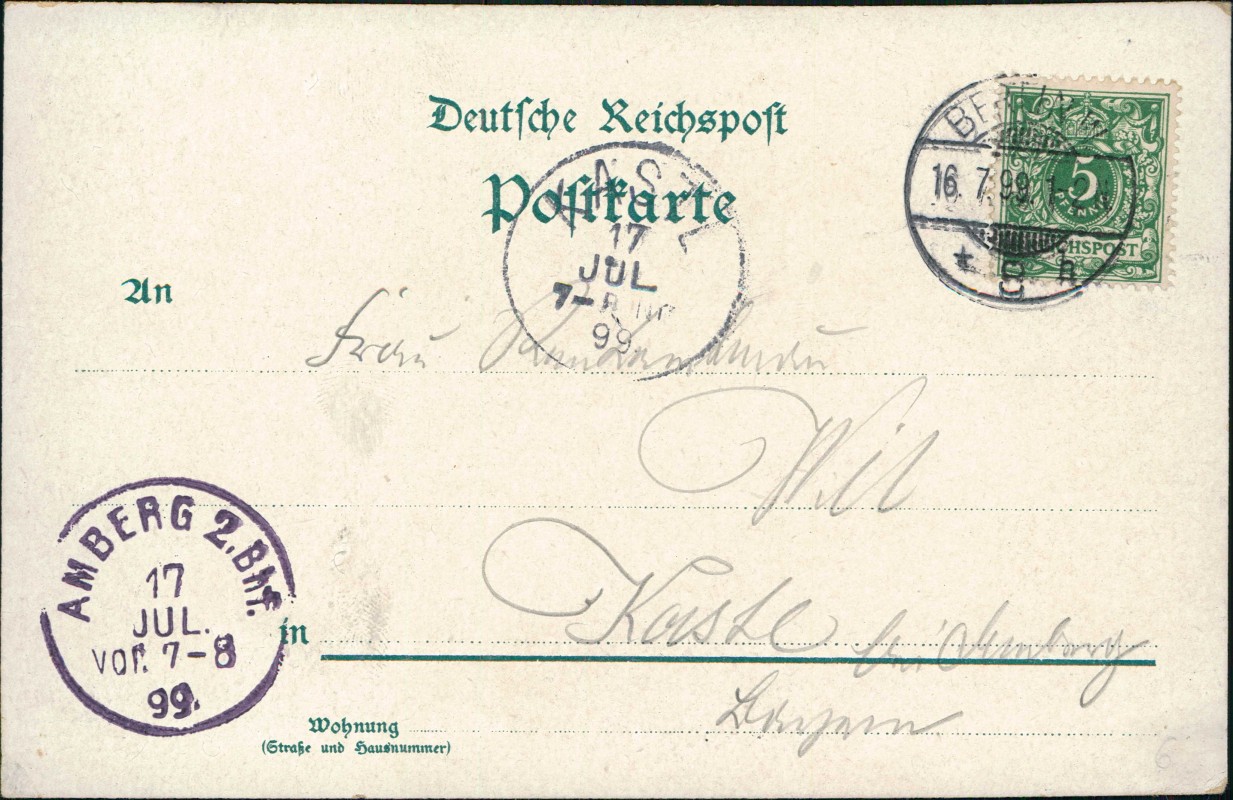 Deutsche Reichspost
Postkarte
BERLIN W
16. 7. 99. 1-2 N
* 9 h
5
PFENNIG
REICHSPOST
KASTL
17
JUL
7-8
99
An
Frau
Will
in Kastl bei Amberg
Bayern
AMBERG 2. Bhf.
17
JUL.
Vor. 7-8
99.
Wohnung
(Straße und Hausnummer)
6